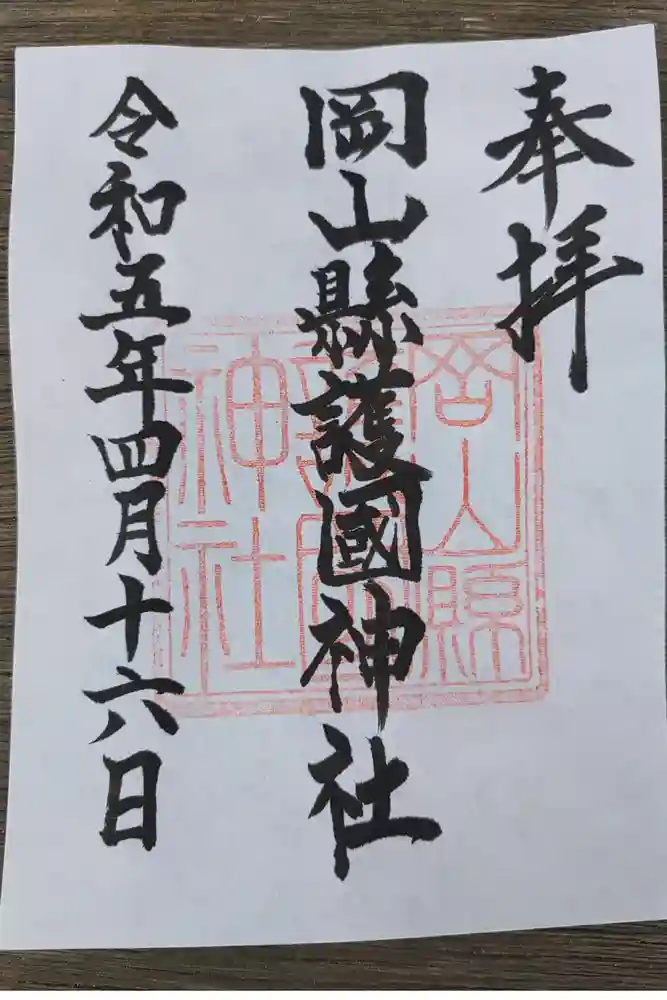 奉拝
岡山縣護國神社
岡山縣
護國
神社
令和五年四月十六日